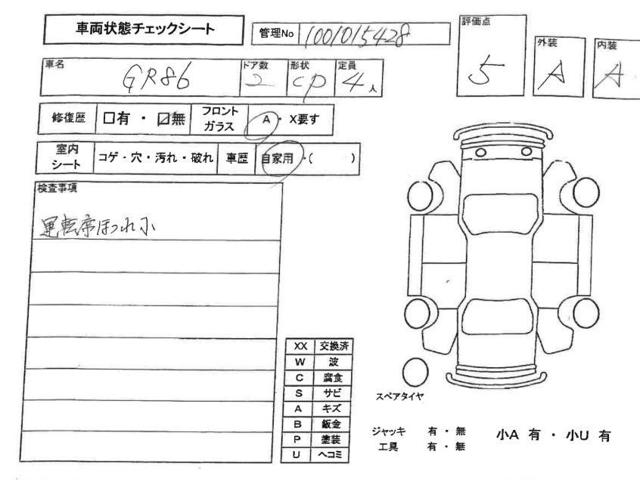 車両状態チェックシート
管理No 1001015428
評価点 5
外装 A
内装 A
車名 GR86
ドア数 2
形状 CP
定員 4人
修復歴 □有・☑無
フロントガラス A・X要す
室内シート コゲ・穴・汚れ・破れ
車歴 自家用・( )
検査事項
運転席ほつれ小
XX 交換済
W 波
C 腐食
S サビ
A キズ
B 鈑金
P 塗装
U ヘコミ
スペアタイヤ
ジャッキ 有・無
工具 有・無
小A 有・小U 有